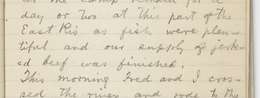 we camp remained for a
day or two at this part of the
East Pis as fish were plen-
tiful and our supply of jerk-
ed beef was finished.
This morning Fred and I cros-
sed the river and rode to the